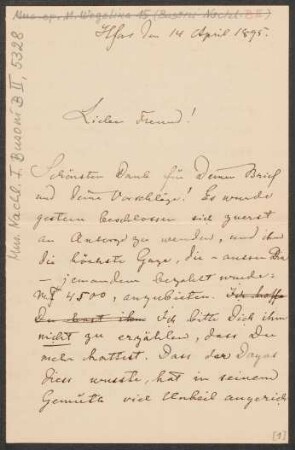 Mus. ep. M. Wegelius 15 (Busoni-Nachl. B II)
Mus. Nachl. F. Busoni B II, 5328
H:fors den 14 April 1895.
Lieber Freund!
Schönsten Dank für Deinen Brief
und Deine Vorschläge! Es wurde
gestern beschlossen sich zuerst
an Ansorge zu wenden, und ihm
die höchste Gage, die – ausser Dir
– jemandem bezahlt wurde:
Mk 4500, anzubieten. Ich hoffe
Du hast ihm Ich bitte Dich ihm
nicht zu erzählen, dass Du
mehr hattest. Dass der Dayas
diess wusste, hat in seinem
Gemüth viel Unheil angerich-
[1]